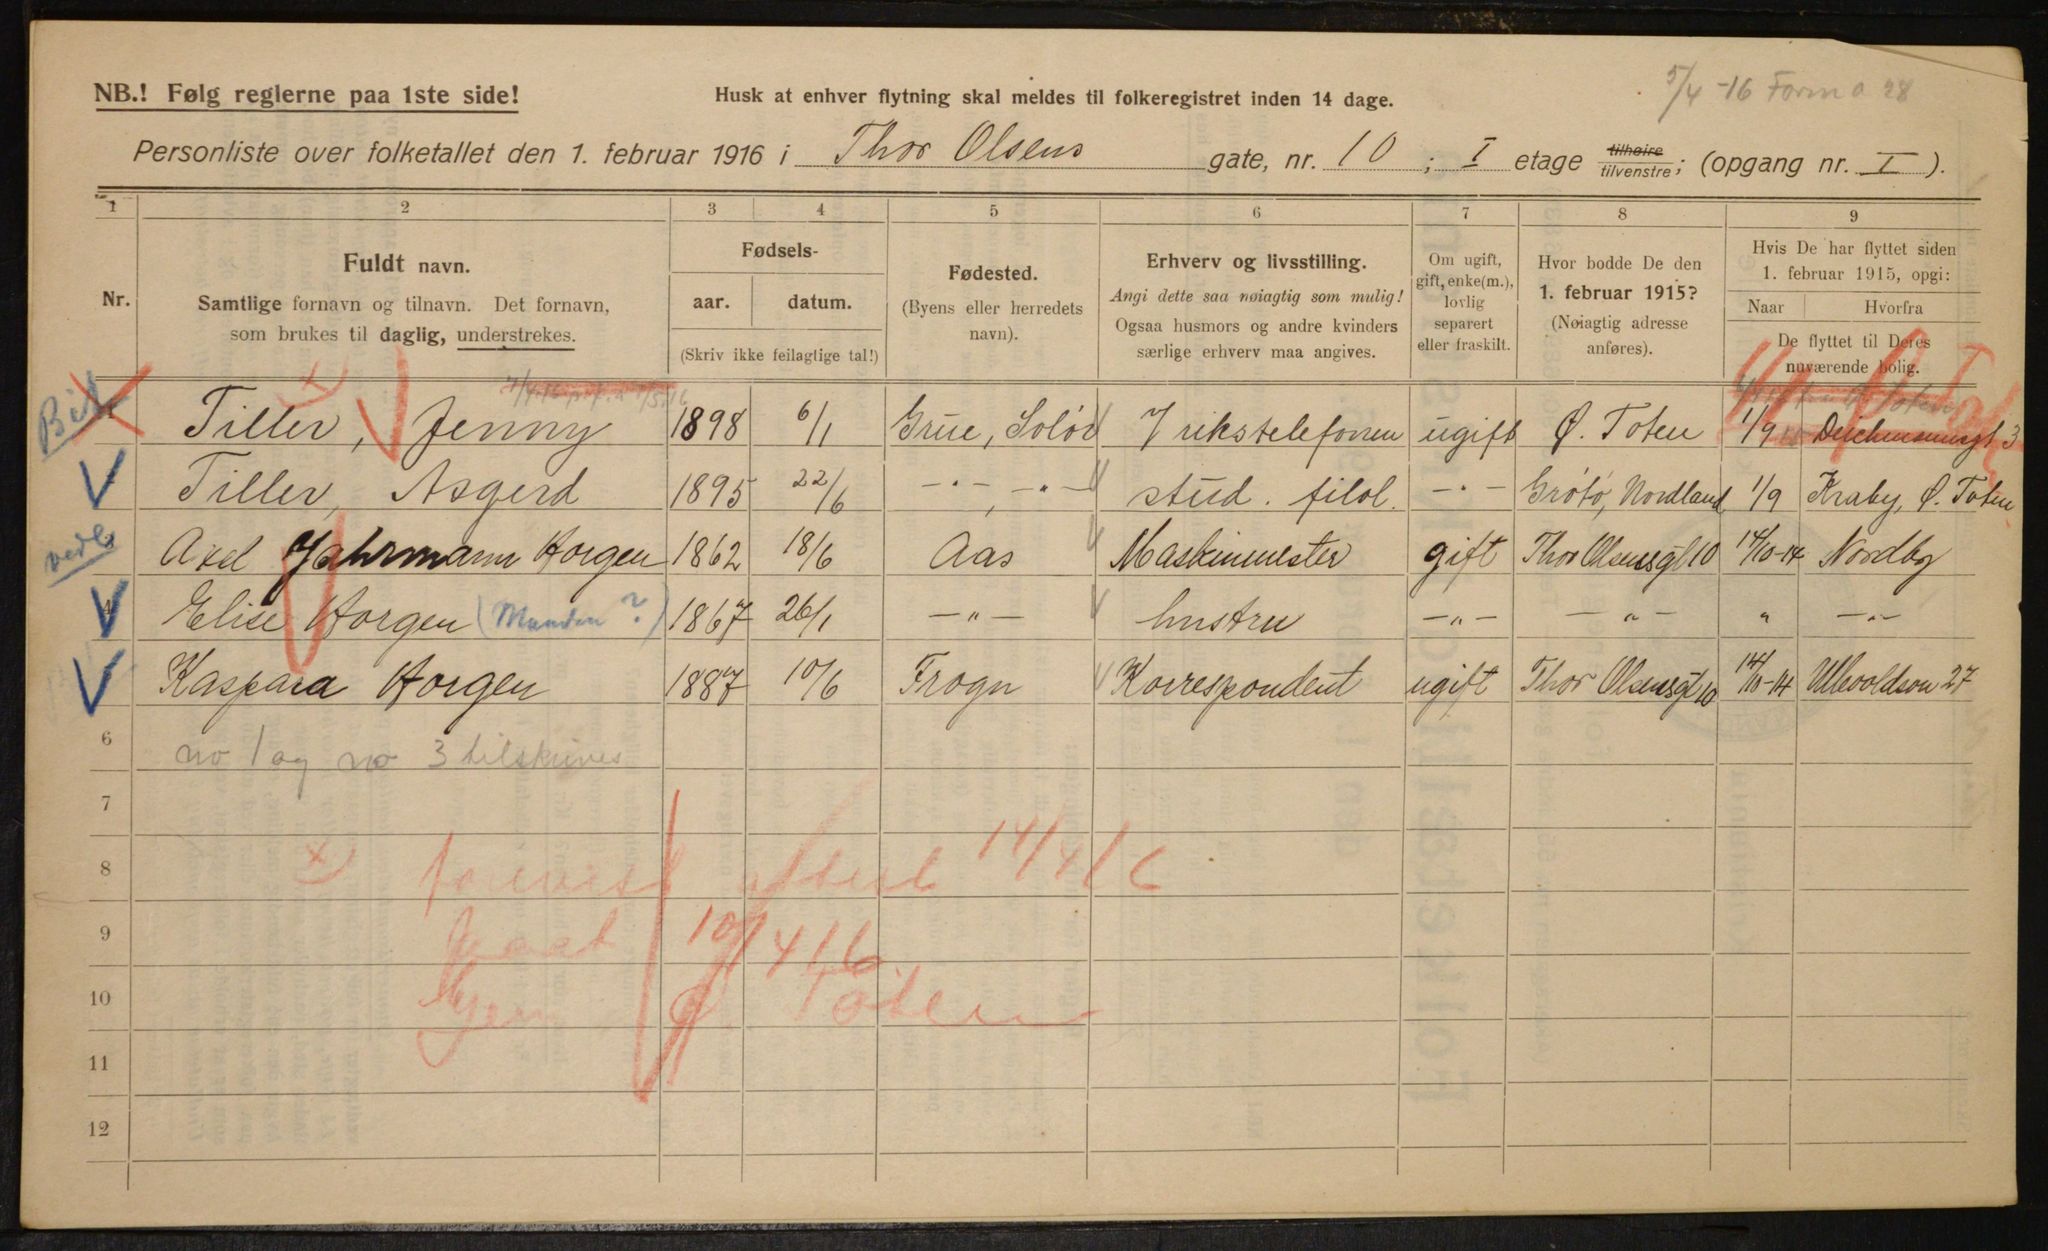 5/4 -16 Form a 28
NB.! Følg reglerne paa 1ste side!
Husk at enhver flytning skal meldes til folkeregistret inden 14 dage.
Personliste over folketallet den 1. februar 1916 i Thor Olsens gate, nr. 10 ; I etage tilhøire tilvenstre; (opgang nr. I ).
1 2 3 4 5 6 7 8 9
Nr.
Fuldt navn.
Samtlige fornavn og tilnavn. Det fornavn,
som brukes til daglig, understrekes.
Fødsels-
aar. datum.
(Skriv ikke feilagtige tal!)
Fødested.
(Byens eller herredets
navn).
Erhverv og livsstilling.
Angi dette saa nøiagtig som mulig!
Ogsaa husmors og andre kvinders
særlige erhverv maa angives.
Om ugift,
gift, enke(m.),
lovlig
separert
eller fraskilt.
Hvor bodde De den
1. februar 1915?
(Nøiagtig adresse
anføres).
Hvis De har flyttet siden
1. februar 1915, opgi:
Naar Hvorfra
De flyttet til Deres
nuværende bolig.
Tiller, Jenny 1898 6/1 Grue, Solør I rikstelefonen ugift Ø. Toten 1/9 3
Tiller, Asgerd 1895 22/6 -"- , -"- stud. filol. -"- Grøtø, Nordland 1/9 Kraby, Ø. Toten
Axel Jahrmann Horgen 1862 18/6 Aas Maskinmester gift Thor Olsensgt 10 14/10-14 Nordby
4 Elise Horgen (Manden?) 1867 26/1 -"- hustru -"- -"- " -"-
Kaspara Horgen 1887 10/6 Frogn Korrespondent ugift Thor Olsensgt 10 14/10-14 Ullevoldsvn 27
6 no 1 og no 3 tilskrives
7
8 x) forevist attest 14/4 16
9 10/4 16
10 Ø. Toten
11
12